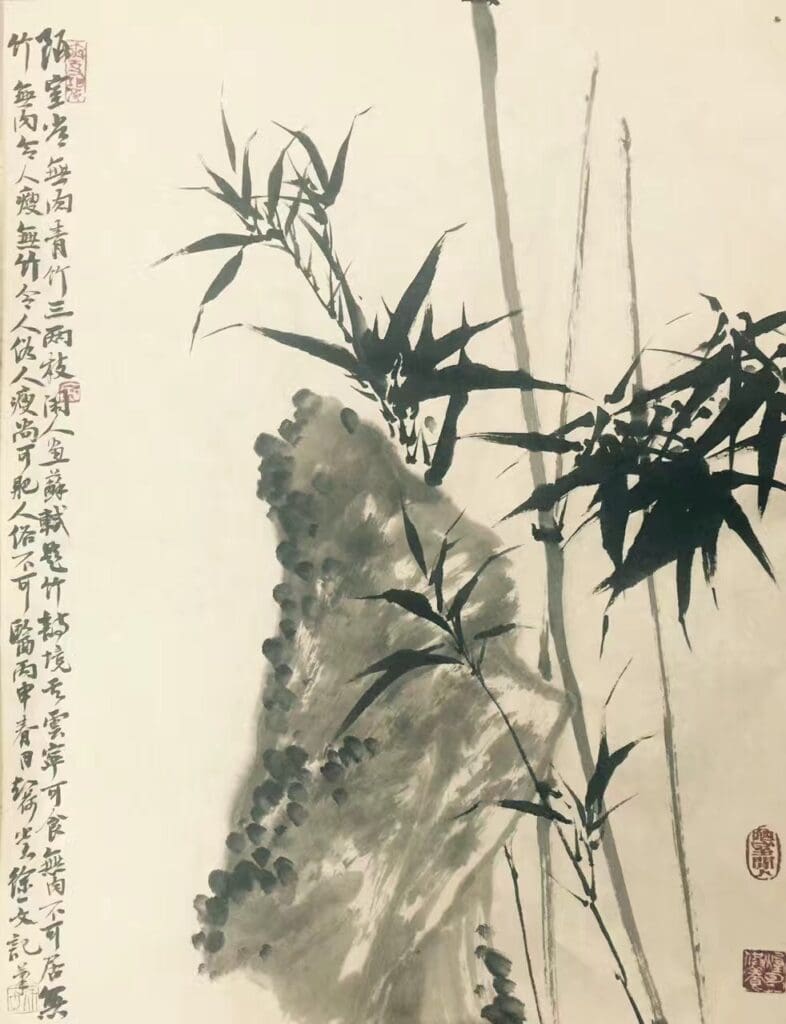 陋室常無肉青竹三兩枝閑人畫蘇軾題竹境雲寧可食無肉不可居無
竹無肉令人瘦無竹令人俗人瘦尚可肥人俗不可醫丙申春日荷堂徐一文記
陋室閑人